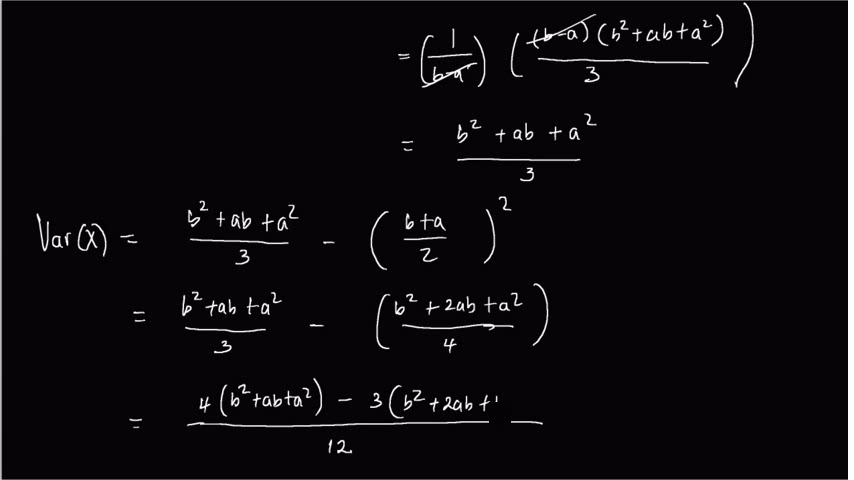 = (1/(b-a)) ((b-a)(b²+ab+a²)/3)
= (b² + ab + a²)/3
Var(X) = (b² + ab + a²)/3 - ((b+a)/2)²
= (b² + ab + a²)/3 - ((b² + 2ab + a²)/4)
= (4(b²+ab+a²) - 3(b²+2ab+)/12